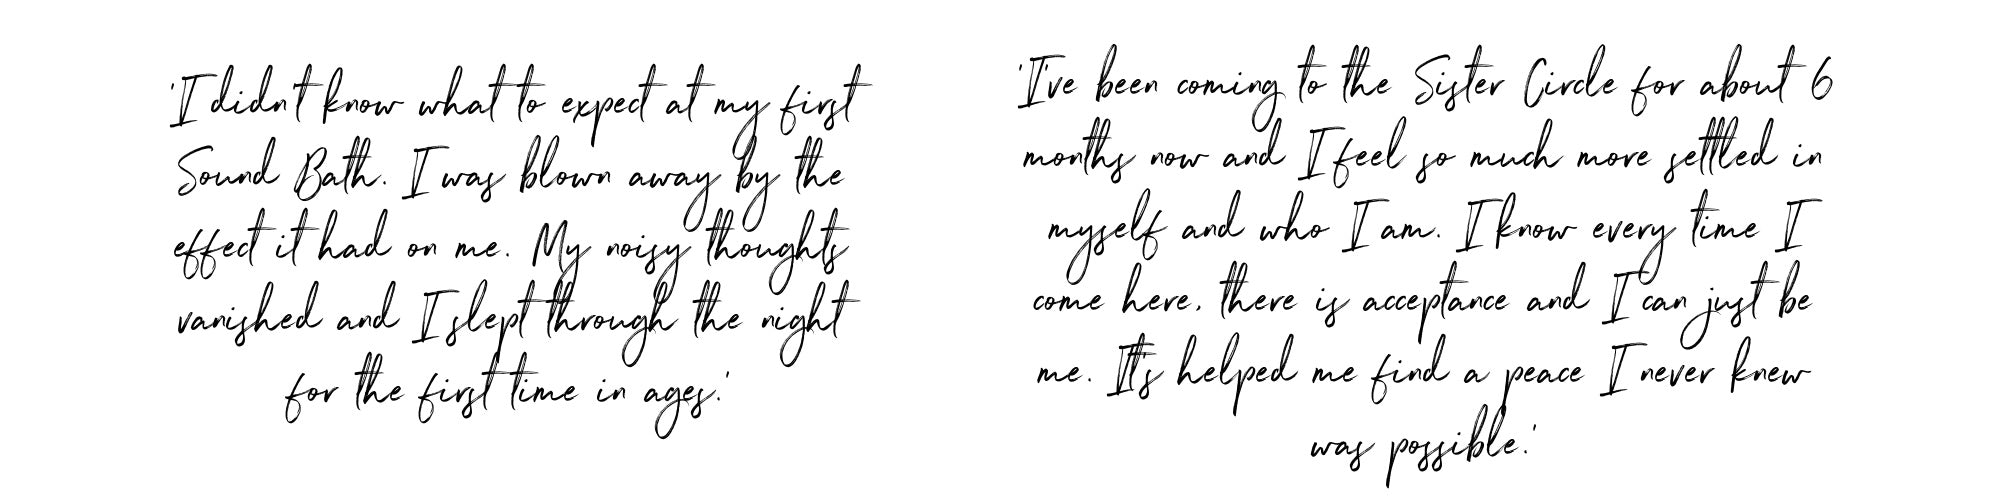 'I didn't know what to expect at my first
Sound Bath. I was blown away by the
effect it had on me. My noisy thoughts
vanished and I slept through the night
for the first time in ages.'
'I've been coming to the Sister Circle for about 6
months now and I feel so much more settled in
myself and who I am. I know every time I
come here, there is acceptance and I can just be
me. It's helped me find a peace I never knew
was possible.'